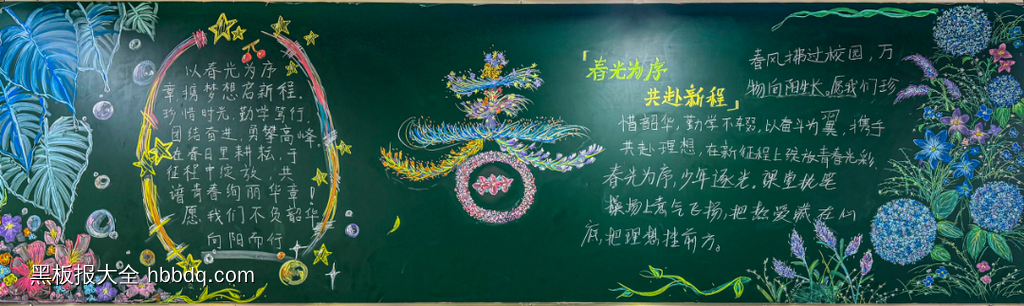 以春光为序
掌携梦想启新程.
珍惜时光,勤学笃行,
团结奋进,勇攀高峰,
在春日里耕耘,于
征程中绽放,共
谱青春绚丽华章!
愿我们不负韶华
向阳而行
春
「春光为序
共赴新程」
春风拂过校园,万
物向阳生长.愿我们珍
惜韶华,勤学不辍,以奋斗为翼,携手
共赴理想,在新征程上绽放青春光彩
春光为序,少年逐光.课堂执笔
操场上意气飞扬,把热爱藏在心
底,把理想挂前方。
黑板报大全 hbbdq.com